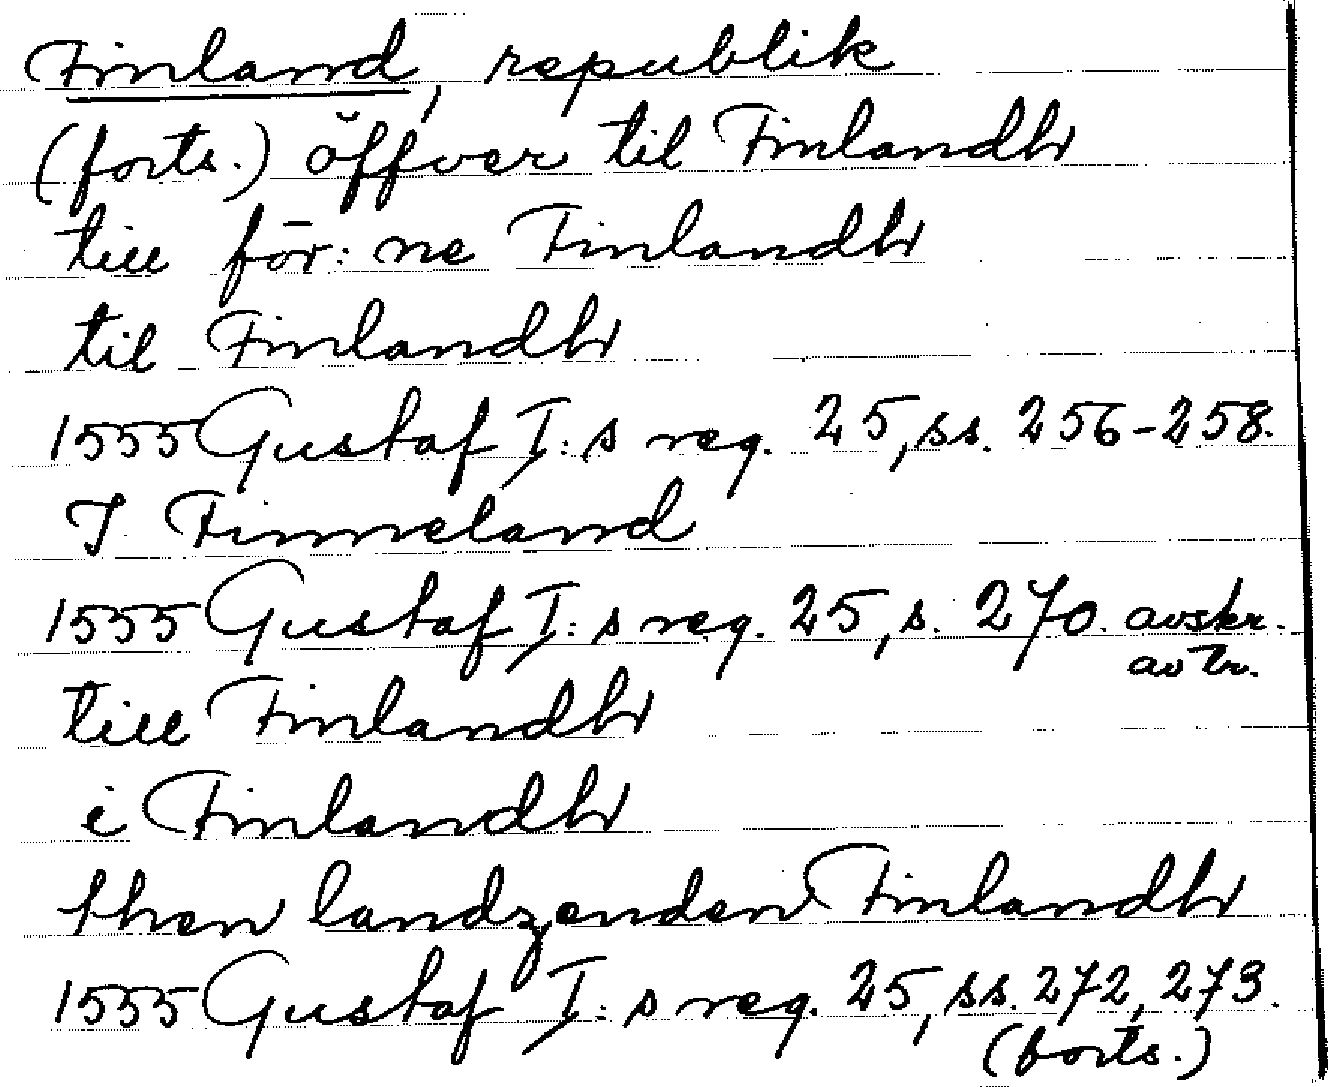 Finland, republik
(forts.) öffver til Finlandh
till för: ne Finlandh
til Finlandh
1555 Gustaf I:s reg. 25, ss. 256-258.
I Finneland
1555 Gustaf I:s reg. 25, s. 270. avskr.
av tr.
till Finlandh
i Finlandh
then landzenden Finlandh
1555 Gustaf I:s reg. 25, ss. 272, 273.
(forts.)